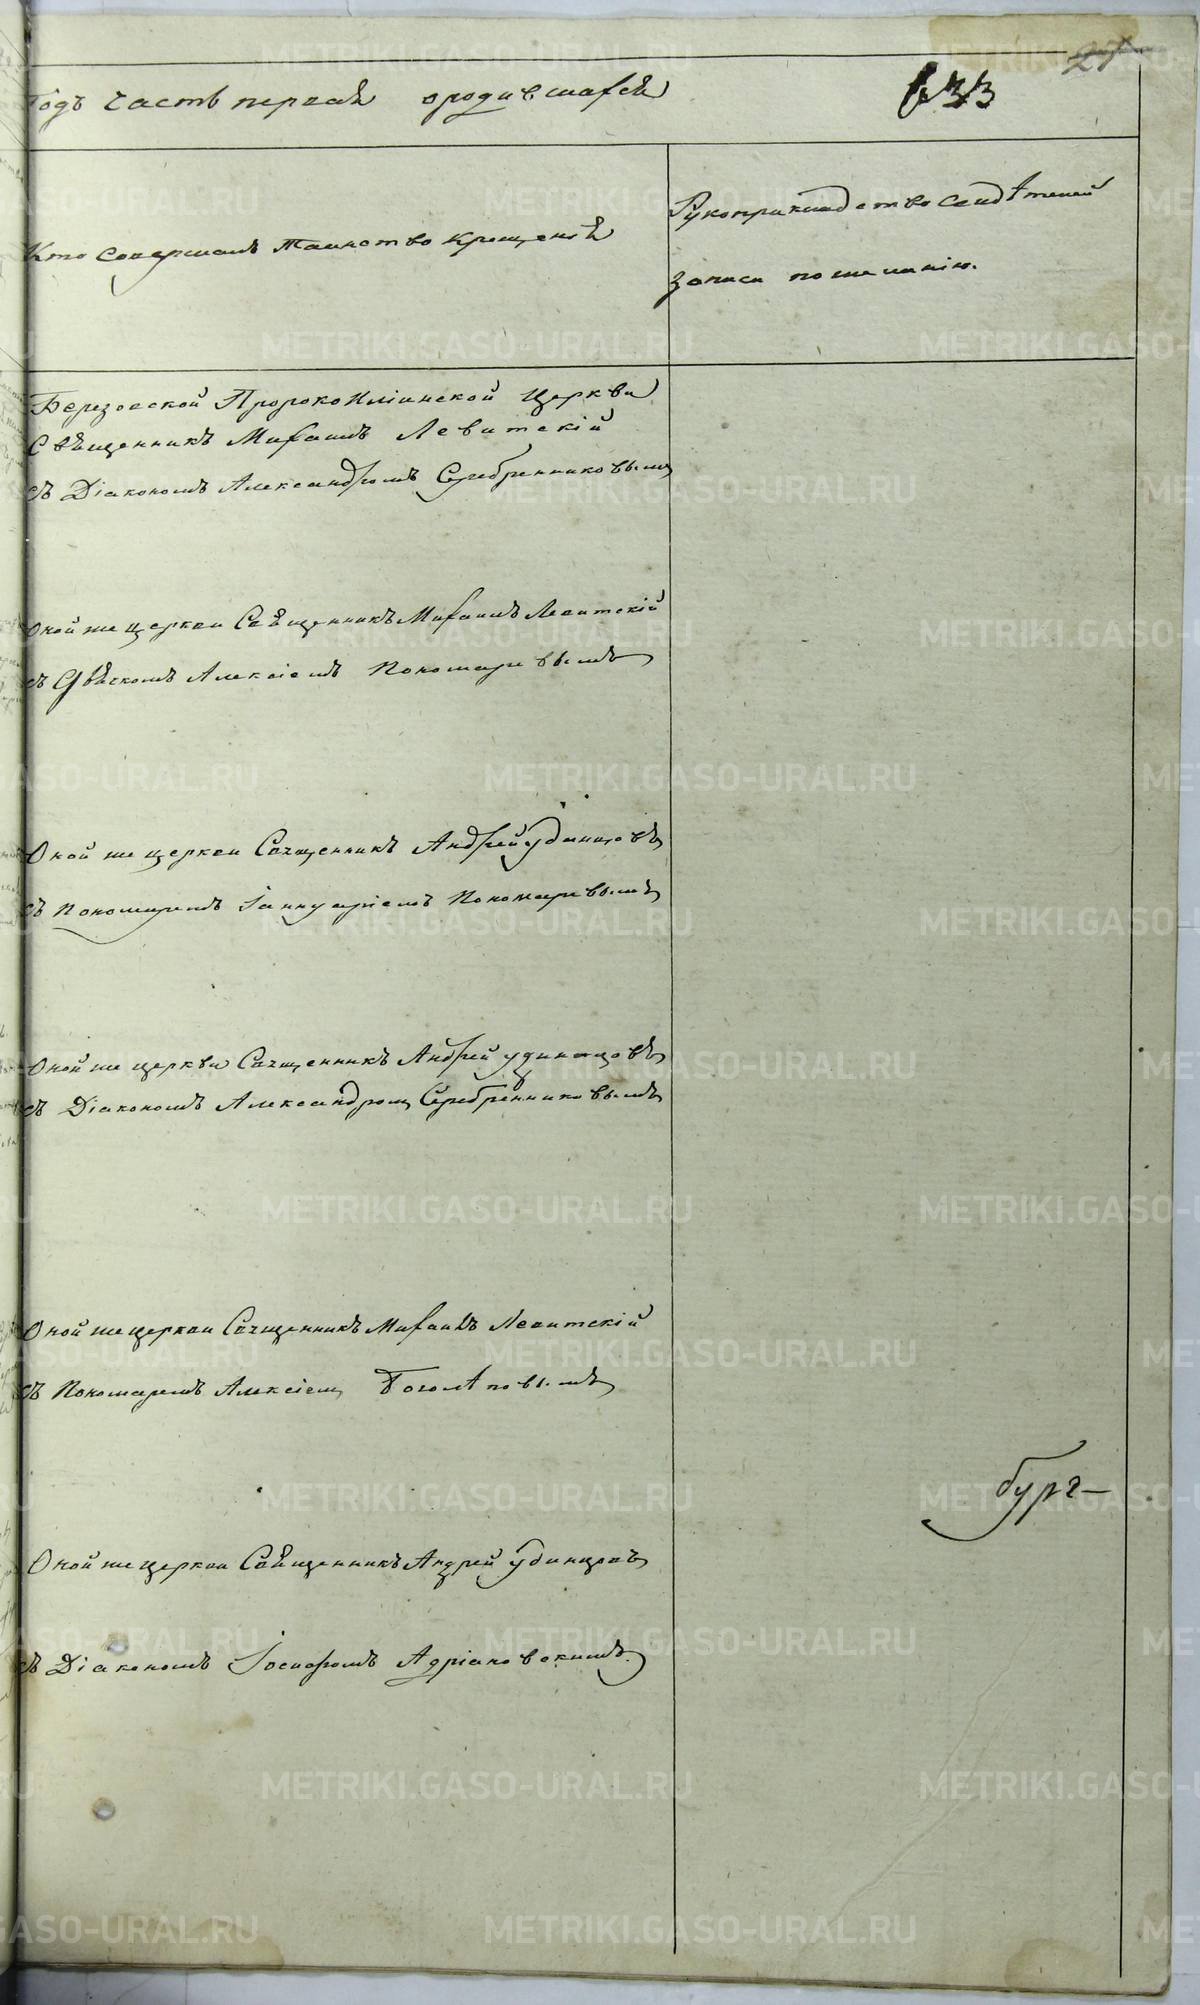 Годъ часть первая ородившахся
633
Кто совершалъ таинство крещенія
Рукоприкладство свидѣтелей
записи пожеланію.
Березовской Пророкоиліинской церкви
Священникъ Михаилъ Левитскій
съ Діакономъ Александромъ Серебренниковымъ
Оной же церкви Священникъ Михаилъ Левитскій
съ Дьячкомъ Алексіемъ Пономаревымъ
Оной же церкви Священникъ Андрей Удинцовъ
съ Пономаремъ Іаннуаріемъ Пономаревымъ
Оной же церкви Священникъ Андрей Удинцовъ
съ Діакономъ Александромъ Серебренниковымъ
Оной же церкви Священникъ Михаилъ Левитскій
съ Пономаремъ Алексіемъ Боголѣповымъ
бург-
Оной же церкви Священникъ Андрей Удинцовъ
съ Діакономъ Іосифомъ Адріановскимъ
METRIKI.GASO-URAL.RU